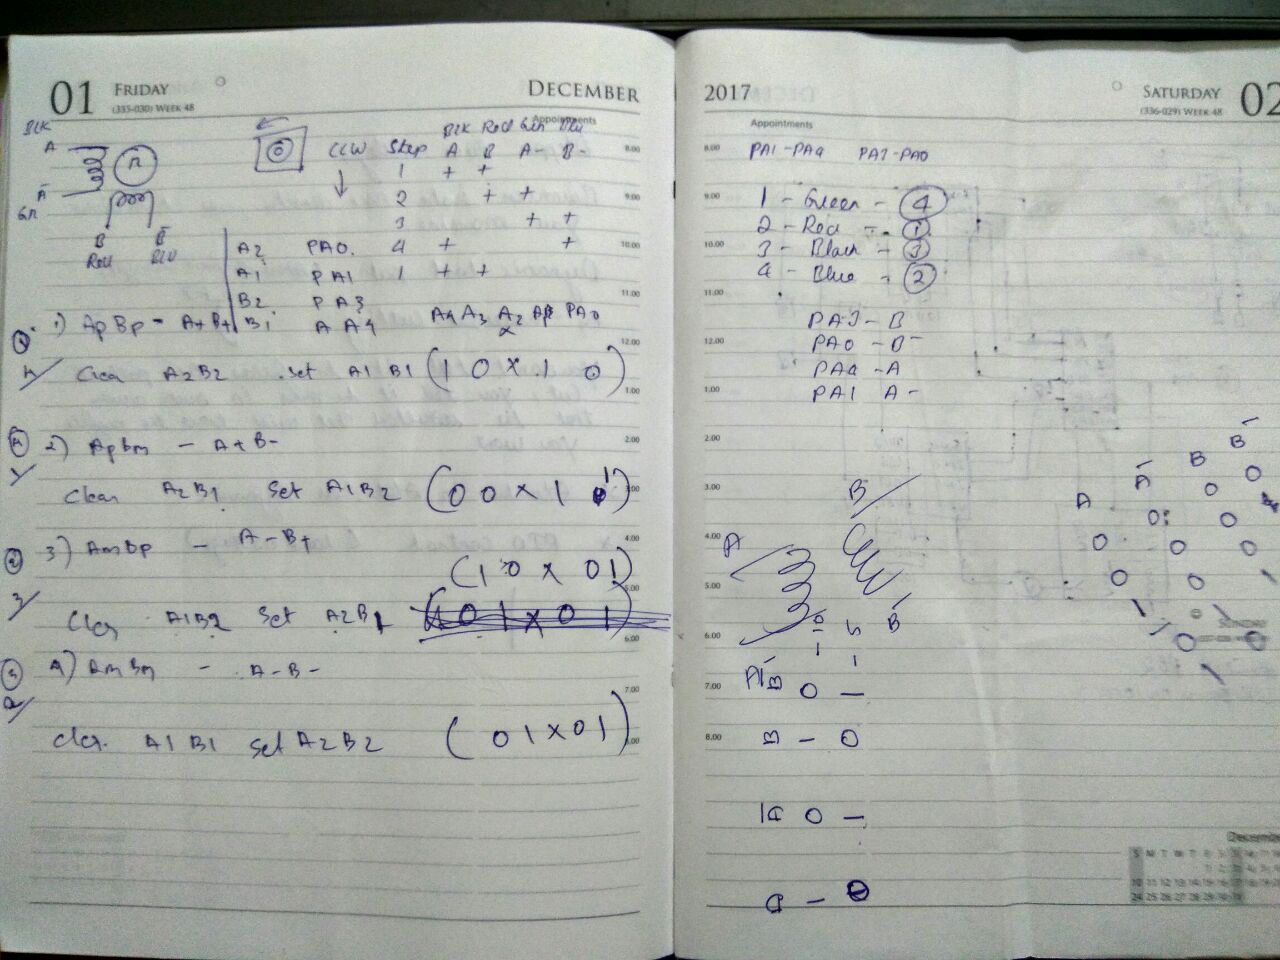 01 FRIDAY DECEMBER
(335-030) WEEK 48
Appointments
BLK
A
Ā
Gn
B B̄
Red BLU
CCW
Step
BLK Red Gn Blu
A B A- B-
1 + +
2 + +
3 + +
4 + +
1 + +
A2 PA0
A1 PA1
B2 PA3
B1 A A4
1) ApBp - A+B+
A4 A3 A2 PA0
x
Clear A2B2 Set A1B1 (1 0 x 1 0)
2) ApBm - A+B-
Clear A2B1 Set A1B2 (0 0 x 1
3) AmBp - A-B+
(1 0 x 0 1)
Clea A1B2 Set A2B1 (1 0 1 x 0 1)
4) AmBm - A-B-
Clea A1B1 Set A2B2 (0 1 x 0 1)
8.00
9.00
10.00
11.00
12.00
1.00
2.00
3.00
4.00
5.00
6.00
7.00
8.00
2017 SATURDAY 02
(336-029) WEEK 48
Appointments
8.00 PA1-PA4 PA3-PA0
9.00 1 - Green - 4
2 - Red - 1
10.00 3 - Black - 3
4 - Blue - 2
11.00
PA3 - B
12.00 PA0 - B-
PA4 - A
1.00 PA1 A-
2.00
3.00
4.00
5.00
6.00
7.00
8.00
A
B
B̄
A Ā B B̄
December
S M T W T F S